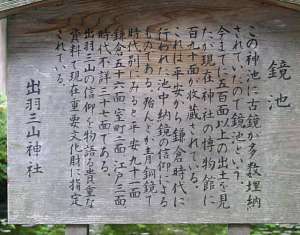 鏡池
この神池に古鏡が多数埋納
されていたので鏡池という。
今までに五百面以上の出土を見
たが現在神社の博物館に
百九十面が収蔵されている。
これは平安から鎌倉時代に
行われた池中納鏡の信仰による
ものである。殆んどが青銅鏡で
時代別にみると平安九十一面
鎌倉五十六面室町三面江戸三面
時代不詳三十七面である。
出羽三山の信仰を物語る貴重な
資料で現在重要文化財に指定
されている。
出羽三山神社